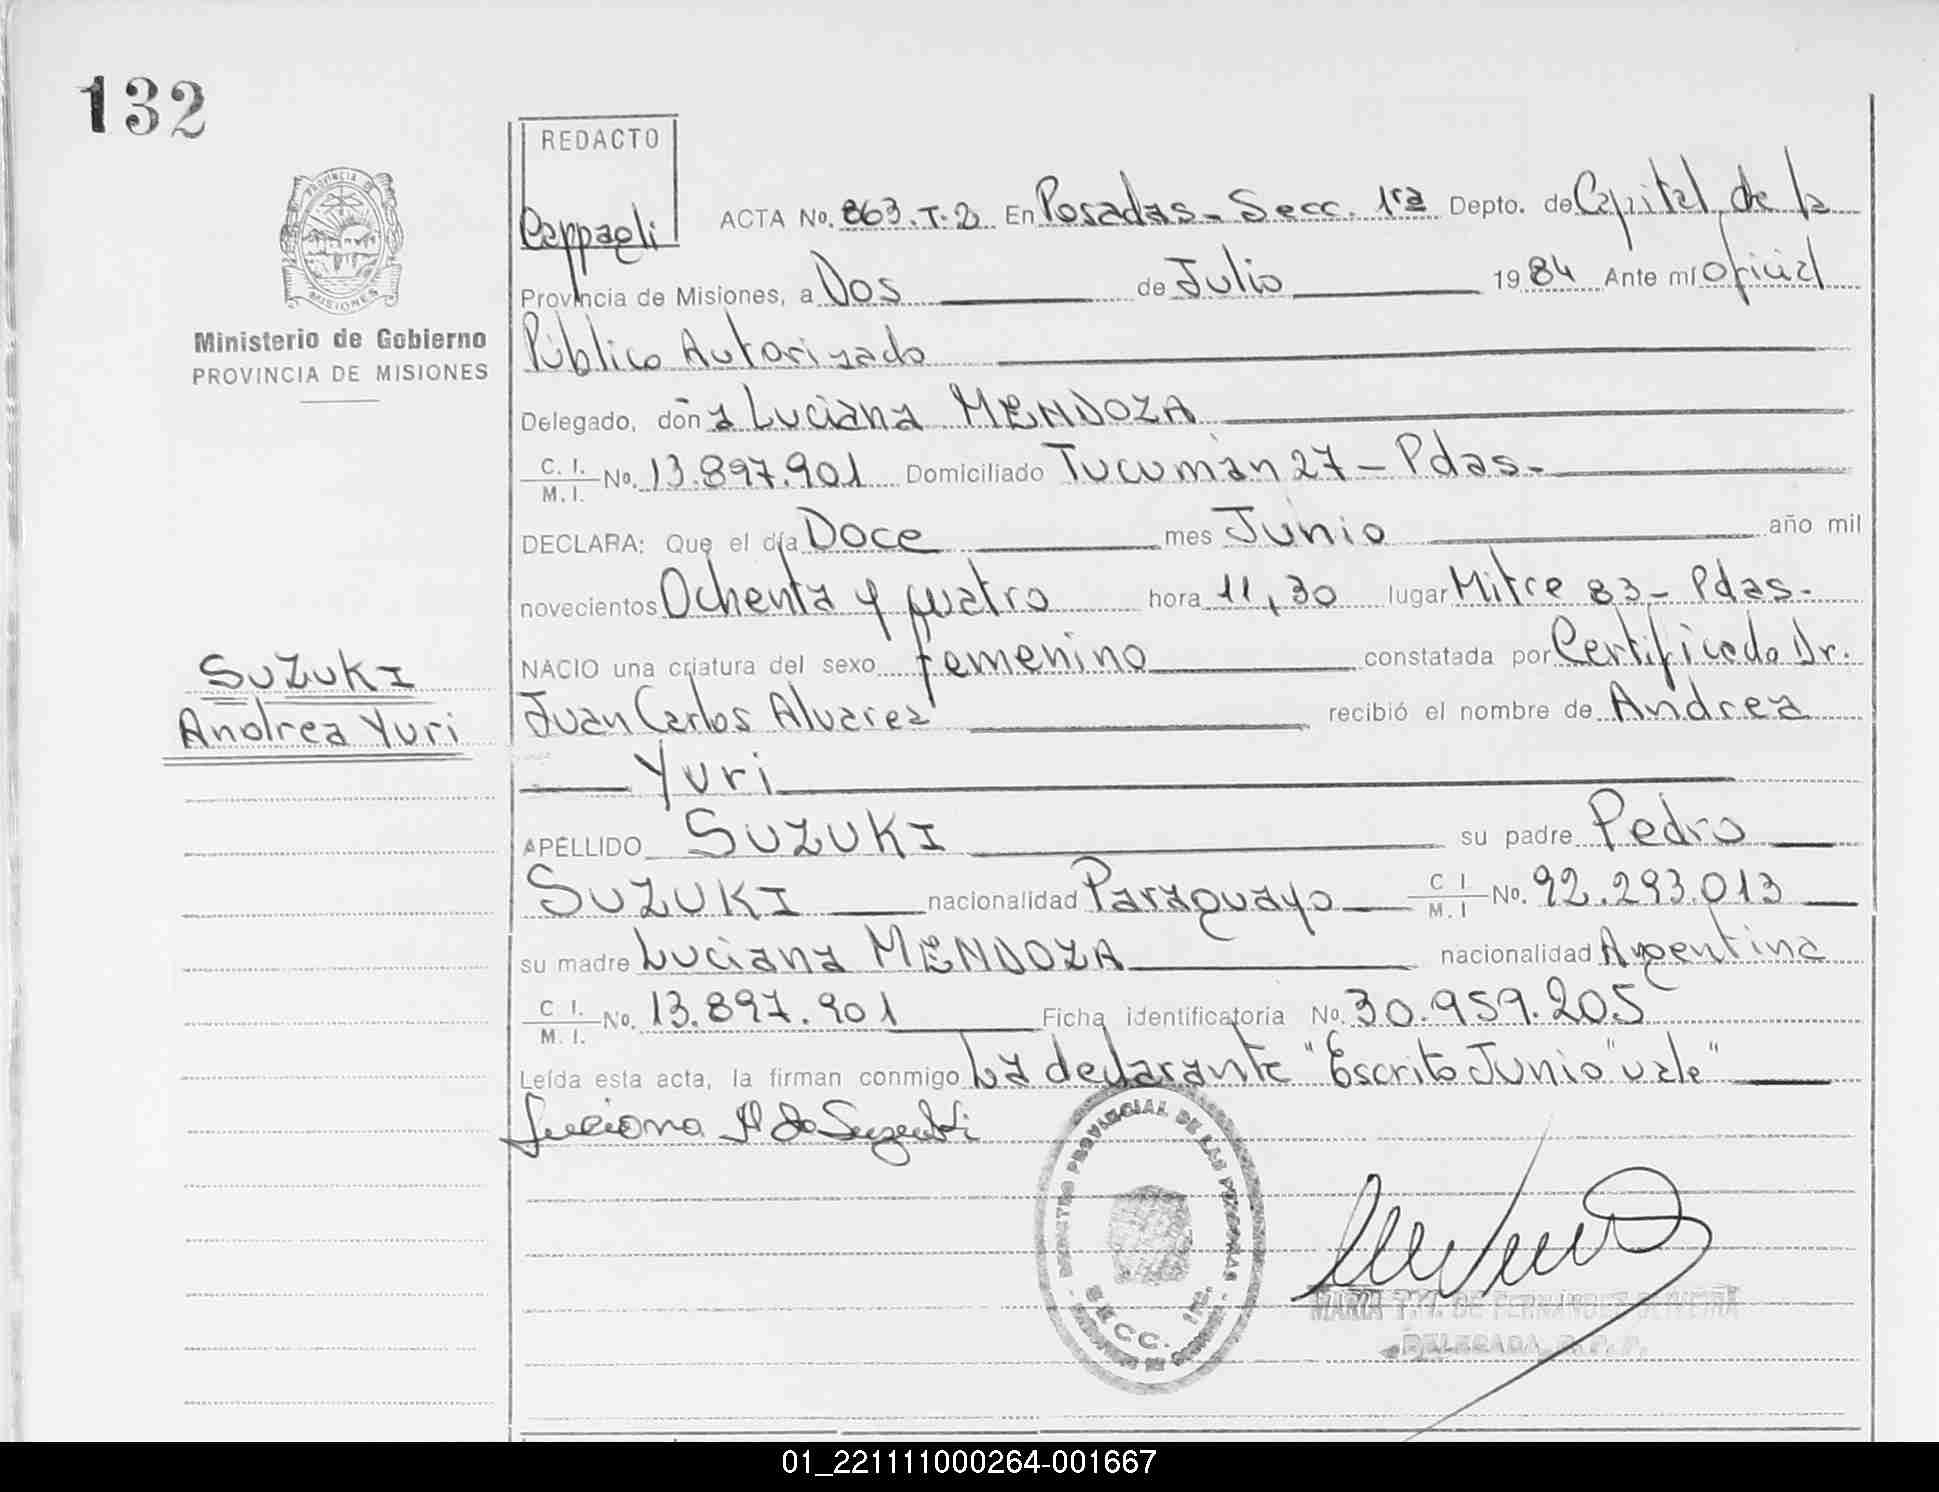 132
REDACTO
Cappagli
PROVINCIA DE
MISIONES
Ministerio de Gobierno
PROVINCIA DE MISIONES
ACTA No. 863.T.2 En Posadas - Secc. 1ra Depto. de Capital de la
Provincia de Misiones, a Dos de Julio 1984 Ante mí oficial
Público Autorizado
Delegado, doña Luciana MENDOZA
C. I. / M. I. No. 13.897.901 Domiciliado Tucumàn 27 - Pdas.
DECLARA: Que el día Doce mes Junio año mil
novecientos Ochenta y cuatro hora 11,30 lugar Mitre 83 - Pdas.
NACIO una criatura del sexo femenino constatada por Certificado Dr.
Juan Carlos Alvarez recibió el nombre de Andrea
Yuri
SUZUKI
Andrea Yuri
APELLIDO SUZUKI su padre Pedro
SUZUKI nacionalidad Paraguayo C I / M. I No. 92.293.013
su madre Luciana MENDOZA nacionalidad Argentina
C I. / M. I. No. 13.897.901 Ficha identificatoria No. 30.959.205
Leída esta acta, la firman conmigo La declarante "Escrito Junio" vale"
Luciana M de Suzuki
REGISTRO PROVINCIAL DE LAS PERSONAS
SECC. 1ra.
MARIA T. DE FERNANDEZ OLIVEIRA
DELEGADA R. P. P.
01_221111000264-001667